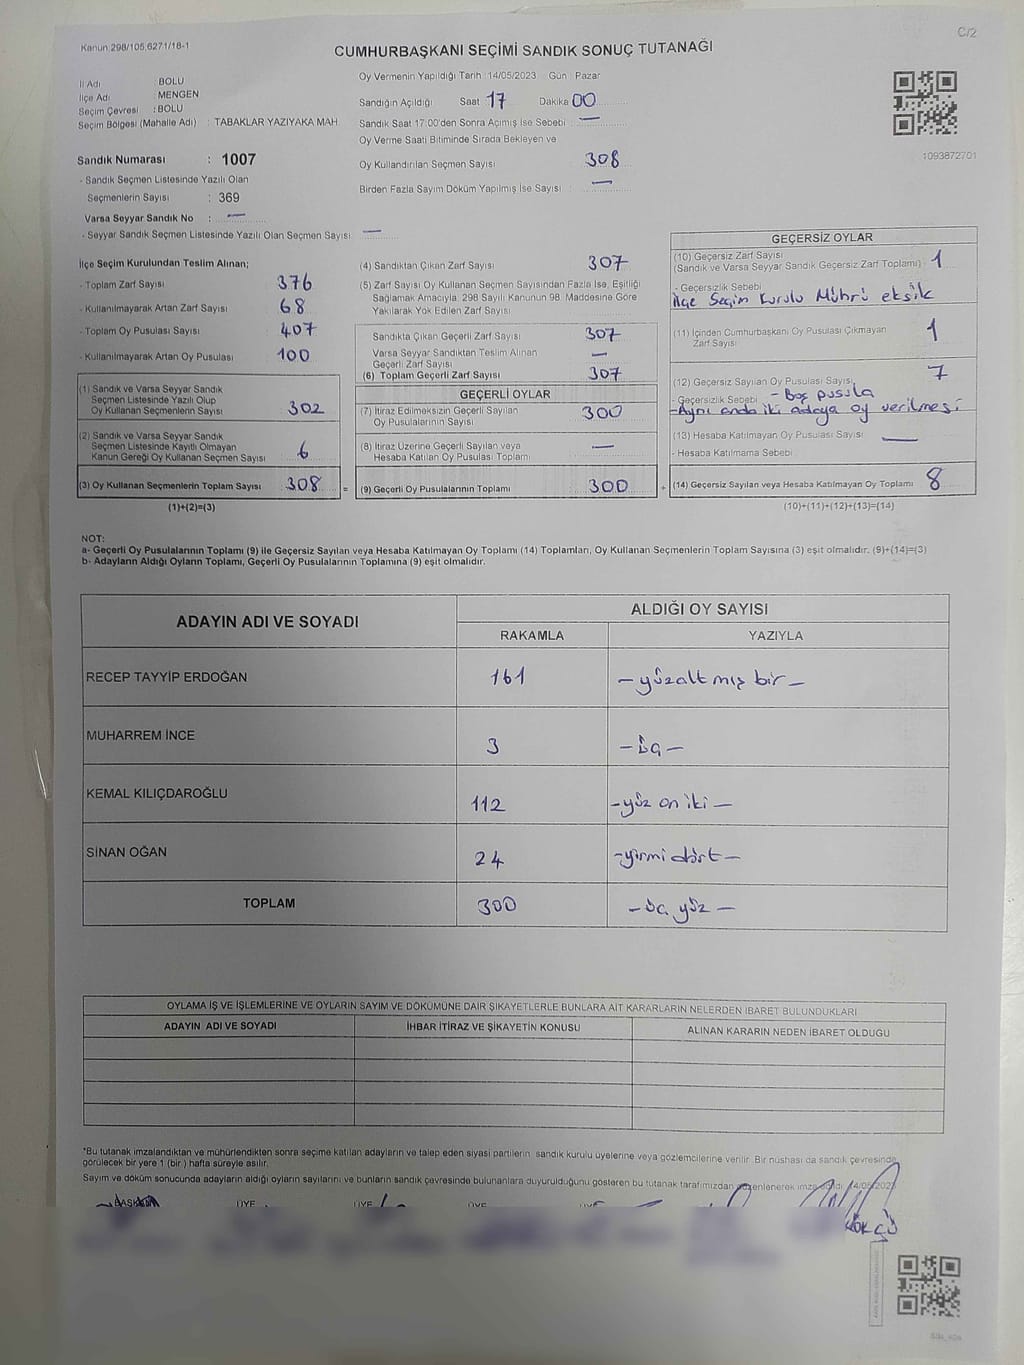 Kanun;298/105,6271/18-1
C/2
CUMHURBAŞKANI SEÇİMİ SANDIK SONUÇ TUTANAĞI
İl Adı : BOLU
İlçe Adı : MENGEN
Seçim Çevresi : BOLU
Seçim Bölgesi (Mahalle Adı) : TABAKLAR YAZIYAKA MAH.
Sandık Numarası : 1007
- Sandık Seçmen Listesinde Yazılı Olan
Seçmenlerin Sayısı : 369
Varsa Seyyar Sandık No : —
- Seyyar Sandık Seçmen Listesinde Yazılı Olan Seçmen Sayısı: —
Oy Vermenin Yapıldığı Tarih :14/05/2023 Gün : Pazar
Sandığın Açıldığı Saat 17 Dakika 00
Sandık Saat 17:00'den Sonra Açımış İse Sebebi : —
Oy Verme Saati Bitiminde Sırada Bekleyen ve
Oy Kullandırılan Seçmen Sayısı 308
Birden Fazla Sayım Döküm Yapılmış İse Sayısı : —
1093872701
İlçe Seçim Kurulundan Teslim Alınan;
- Toplam Zarf Sayısı 376
- Kullanılmayarak Artan Zarf Sayısı 68
- Toplam Oy Pusulası Sayısı 407
- Kullanılmayarak Artan Oy Pusulası 100
(1) Sandık ve Varsa Seyyar Sandık
Seçmen Listesinde Yazılı Olup
Oy Kullanan Seçmenlerin Sayısı 302
(2) Sandık ve Varsa Seyyar Sandık
Seçmen Listesinde Kayıtlı Olmayan
Kanun Gereği Oy Kullanan Seçmen Sayısı 6
(3) Oy Kullanan Seçmenlerin Toplam Sayısı 308 =
(1)+(2)=(3)
(4) Sandıktan Çıkan Zarf Sayısı 307
(5) Zarf Sayısı Oy Kullanan Seçmen Sayısından Fazla İse, Eşitliği
Sağlamak Amacıyla; 298 Sayılı Kanunun 98. Maddesine Göre
Yakılarak Yok Edilen Zarf Sayısı
Sandıkta Çıkan Geçerli Zarf Sayısı 307
Varsa Seyyar Sandıktan Teslim Alınan
Geçerli Zarf Sayısı —
(6) Toplam Geçerli Zarf Sayısı 307
GEÇERLİ OYLAR
(7) İtiraz Edilmeksizin Geçerli Sayılan
Oy Pusulalarının Sayısı 300
(8) İtiraz Üzerine Geçerli Sayılan veya
Hesaba Katılan Oy Pusulası Toplamı —
(9) Geçerli Oy Pusulalarının Toplamı 300 +
GEÇERSİZ OYLAR
(10) Geçersiz Zarf Sayısı
(Sandık ve Varsa Seyyar Sandık Geçersiz Zarf Toplamı) 1
- Geçersizlik Sebebi
İlçe Seçim Kurulu Mührü eksik
(11) İçinden Cumhurbaşkanı Oy Pusulası Çıkmayan
Zarf Sayısı 1
(12) Geçersiz Sayılan Oy Pusulası Sayısı 7
- Geçersizlik Sebebi - Boş pusula
- Aynı anda iki adaya oy verilmesi
(13) Hesaba Katılmayan Oy Pusulası Sayısı —
- Hesaba Katılmama Sebebi
(14) Geçersiz Sayılan veya Hesaba Katılmayan Oy Toplamı 8
(10)+(11)+(12)+(13)=(14)
NOT:
a- Geçerli Oy Pusulalarının Toplamı (9) ile Geçersiz Sayılan veya Hesaba Katılmayan Oy Toplamı (14) Toplamları, Oy Kullanan Seçmenlerin Toplam Sayısına (3) eşit olmalıdır. (9)+(14)=(3)
b- Adayların Aldığı Oyların Toplamı, Geçerli Oy Pusulalarının Toplamına (9) eşit olmalıdır.
ADAYIN ADI VE SOYADI ALDIĞI OY SAYISI
RAKAMLA YAZIYLA
RECEP TAYYİP ERDOĞAN 161 — yüzaltmış bir —
MUHARREM İNCE 3 — üç —
KEMAL KILIÇDAROĞLU 112 — yüz on iki —
SİNAN OĞAN 24 — yirmi dört —
TOPLAM 300 — üç yüz —
OYLAMA İŞ VE İŞLEMLERİNE VE OYLARIN SAYIM VE DÖKÜMÜNE DAİR ŞİKAYETLERLE BUNLARA AİT KARARLARIN NELERDEN İBARET BULUNDUKLARI
ADAYIN ADI VE SOYADI İHBAR İTİRAZ VE ŞİKAYETİN KONUSU ALINAN KARARIN NEDEN İBARET OLDUĞU
*Bu tutanak imzalandıktan ve mühürlendikten sonra seçime katılan adayların ve talep eden siyasi partilerin sandık kurulu üyelerine veya gözlemcilerine verilir. Bir nüshası da sandık çevresinde
görülecek bir yere 1 (bir ) hafta süreyle asılır.
Sayım ve döküm sonucunda adayların aldığı oyların sayılarını ve bunların sandık çevresinde bulunanlara duyurulduğunu gösteren bu tutanak tarafımızdan düzenlenerek imza edildi. 14/05/2023
BAŞKAN ÜYE ÜYE ÜYE